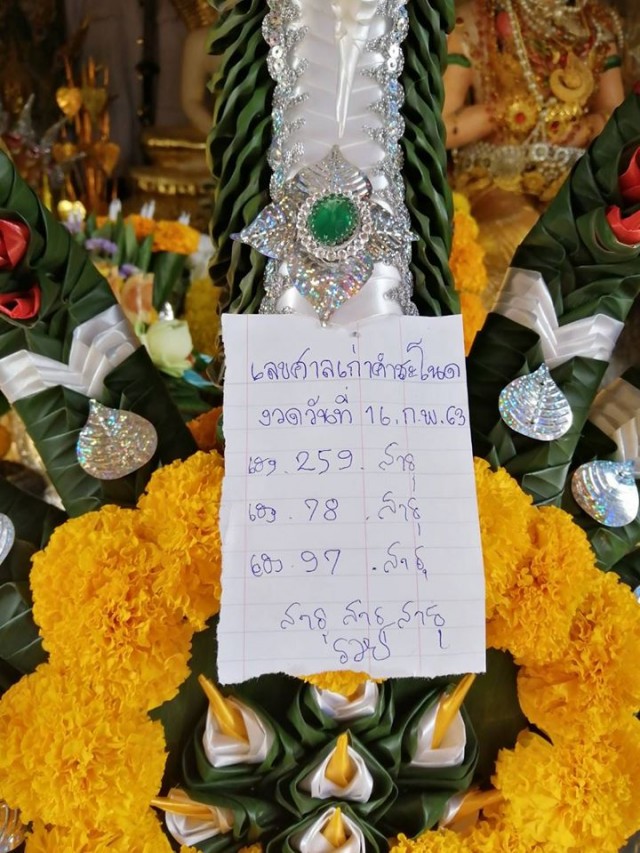 เลขศาลเก่าคำชะโนด
งวดวันที่ 16.ก.พ.63
เฮง. 259. สาธุ
เฮง. 78 . สาธุ
เฮง. 97 . สาธุ
สาธุ สาธุ สาธุ
รวย